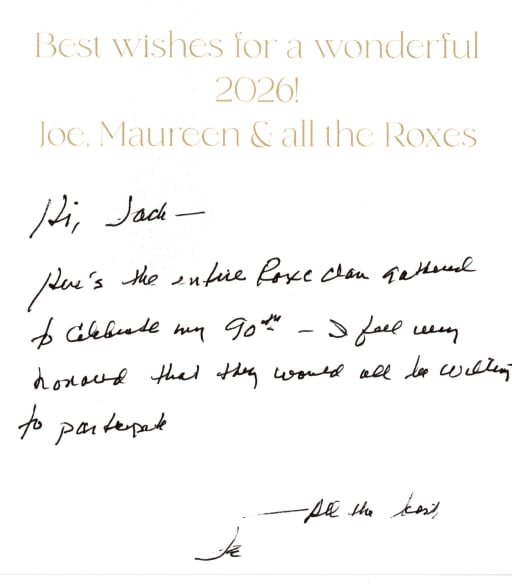 Best wishes for a wonderful
2026!
Joe, Maureen & all the Roxes
Hi, Jack —
Here's the entire Roxe clan gathered
to celebrate my 90th — I feel very
honored that they would all be willing
to participate
— All the best,
Joe